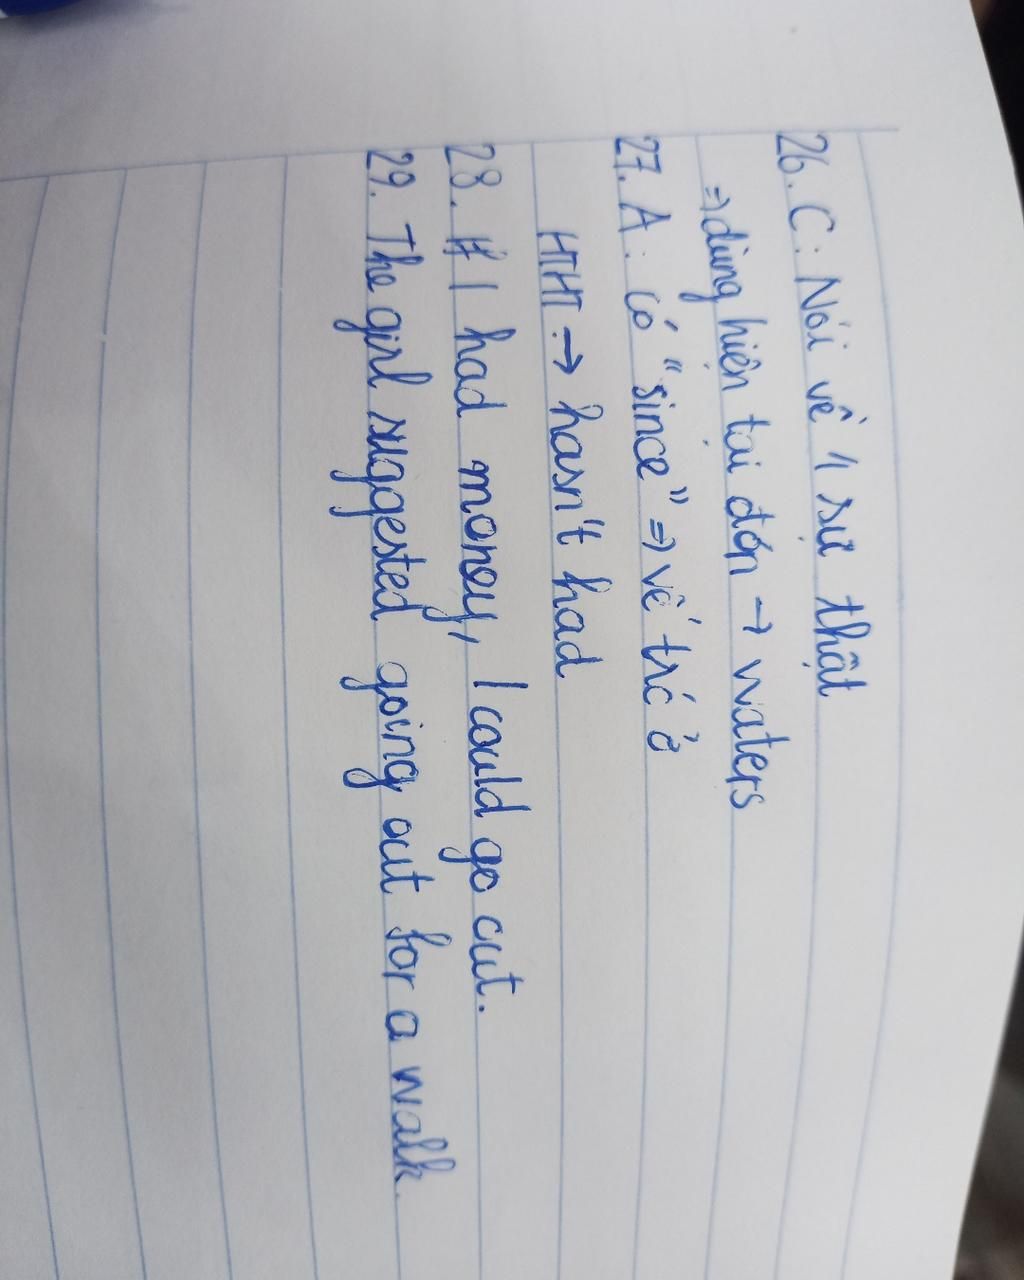 26. C: Nói về 1 sự thật
=> dùng hiện tại đơn → waters
27. A: có "since" => vế trc ở
HTHT → hasn't had
28. If I had money, I could go out.
29. The girl suggested going out for a walk.